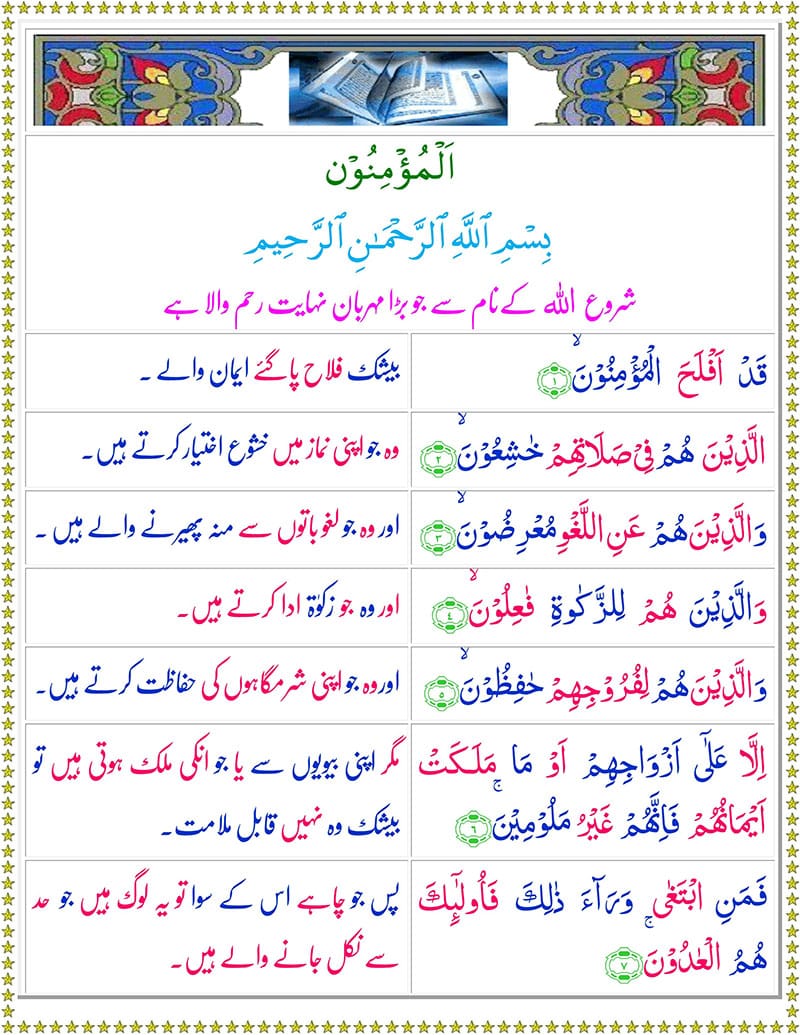 اَلْمُؤْمِنُوْن
بِسْمِ ٱللَّهِ ٱلرَّحْمَـٰنِ ٱلرَّحِيمِ
شروع اللہ کے نام سے جو بڑا مہربان نہایت رحم والا ہے
قَدْ اَفْلَحَ الْمُؤْمِنُوْنَۙ ۱
بیشک فلاح پاگئے ایمان والے ۔
الَّذِيْنَ هُمْ فِيْ صَلَاتِهِمْ خٰشِعُوْنَۙ ۲
وہ جو اپنی نماز میں خشوع اختیار کرتے ہیں۔
وَالَّذِيْنَ هُمْ عَنِ اللَّغْوِ مُعْرِضُوْنَۙ ۳
اور وہ جو لغو باتوں سے منہ پھیرنے والے ہیں ۔
وَالَّذِيْنَ هُمْ لِلزَّكٰوةِ فٰعِلُوْنَۙ ۴
اور وہ جو زکوٰۃ ادا کرتے ہیں۔
وَالَّذِيْنَ هُمْ لِفُرُوْجِهِمْ حٰفِظُوْنَۙ ۵
اور وہ جو اپنی شرمگاہوں کی حفاظت کرتے ہیں۔
اِلَّا عَلٰٓى اَزْوَاجِهِمْ اَوْ مَا مَلَـكَتْ
اَيْمَانُهُمْ فَاِنَّهُمْ غَيْرُ مَلُوْمِيْنَۚ ۶
مگر اپنی بیویوں سے یا جو انکی ملک ہوتی ہیں تو
بیشک وہ نہیں قابل ملامت۔
فَمَنِ ابْتَغٰى وَرَآءَ ذٰلِكَ فَاُولٰٓئِكَ
هُمُ الْعٰدُوْنَۚ ۷
پس جو چاہے اس کے سوا تو یہ لوگ ہیں جو حد
سے نکل جانے والے ہیں۔